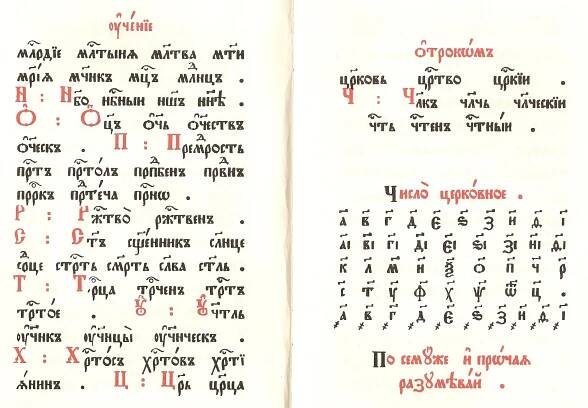 ᲂу҆че́нїе
млⷭ҇рдїе млⷭ҇тыня мл҃тва мт҃и
мр҃їѧ мч҃нкъ мцⷭ҇ъ млⷣнцъ .
Н : Нб҃о нбⷭ҇ный нш҃ъ нн҃ѣ .
Ѻ҆ : Ѻ҆ц҃ъ ѻ҆ч҃ь ѻ҆ч҃еств
ѻ҆ч҃ескъ . П : Премⷣрость
прⷭ҇тъ прⷭ҇то́лъ прпⷣбенъ првⷣнъ
прⷪ҇ркъ прⷣте́ча прⷭ҇нѡ .
Р : Ржⷭ҇тво̀ ржⷭ҇твенъ .
С : Ст҃ъ сщ҃е́нникъ сл҃нце
срⷣце стрⷭ҇ть смр҃ть сл҃ва сп҃ль .
Т : Трⷪ҇ца трⷪ҇ченъ трⷭ҇тъ
трⷭ҇то́е . Ѹ҆ : Ѹ҆чт҃ль
ᲂу҆чн҃икъ ᲂу҆чн҃цы ᲂу҆чн҃ческъ .
Х : Хрⷭ҇то́съ хрⷭ҇то́въ хрⷭ҇тї
ѧ́нинъ . Ц : Цр҃ь цр҃ца
ѻ҆́трокѡмъ
цр҃ковь црⷭ҇тво црⷭ҇кїи .
Ч : Чл҃къ чл҃чь чл҃ческїи
чⷭ҇ть чⷭ҇тенъ чⷭ҇тны́й .
Число̀ церко́вное .
а҃ в҃ г҃ д҃ є҃ ѕ҃ з҃ и҃ ѳ҃ і҃
аі҃ ві҃ гі҃ ді҃ єі҃ ѕі҃ зі҃ иі҃ ѳі҃
к҃ л҃ м҃ н҃ ѯ҃ ѻ҃ п҃ ч҃ р҃
с҃ т҃ у҃ ф҃ х҃ ѱ҃ ѿ҃ ц҃ .
҂а҃ ҂в҃ ҂г҃ ҂д҃ ҂є҃ ҂ѕ҃ ҂з҃ ҂и҃ ҂ѳ҃ ҂і҃
По семꙋ́же и҆ прѡ́чаѧ
разꙋмѣва́й .